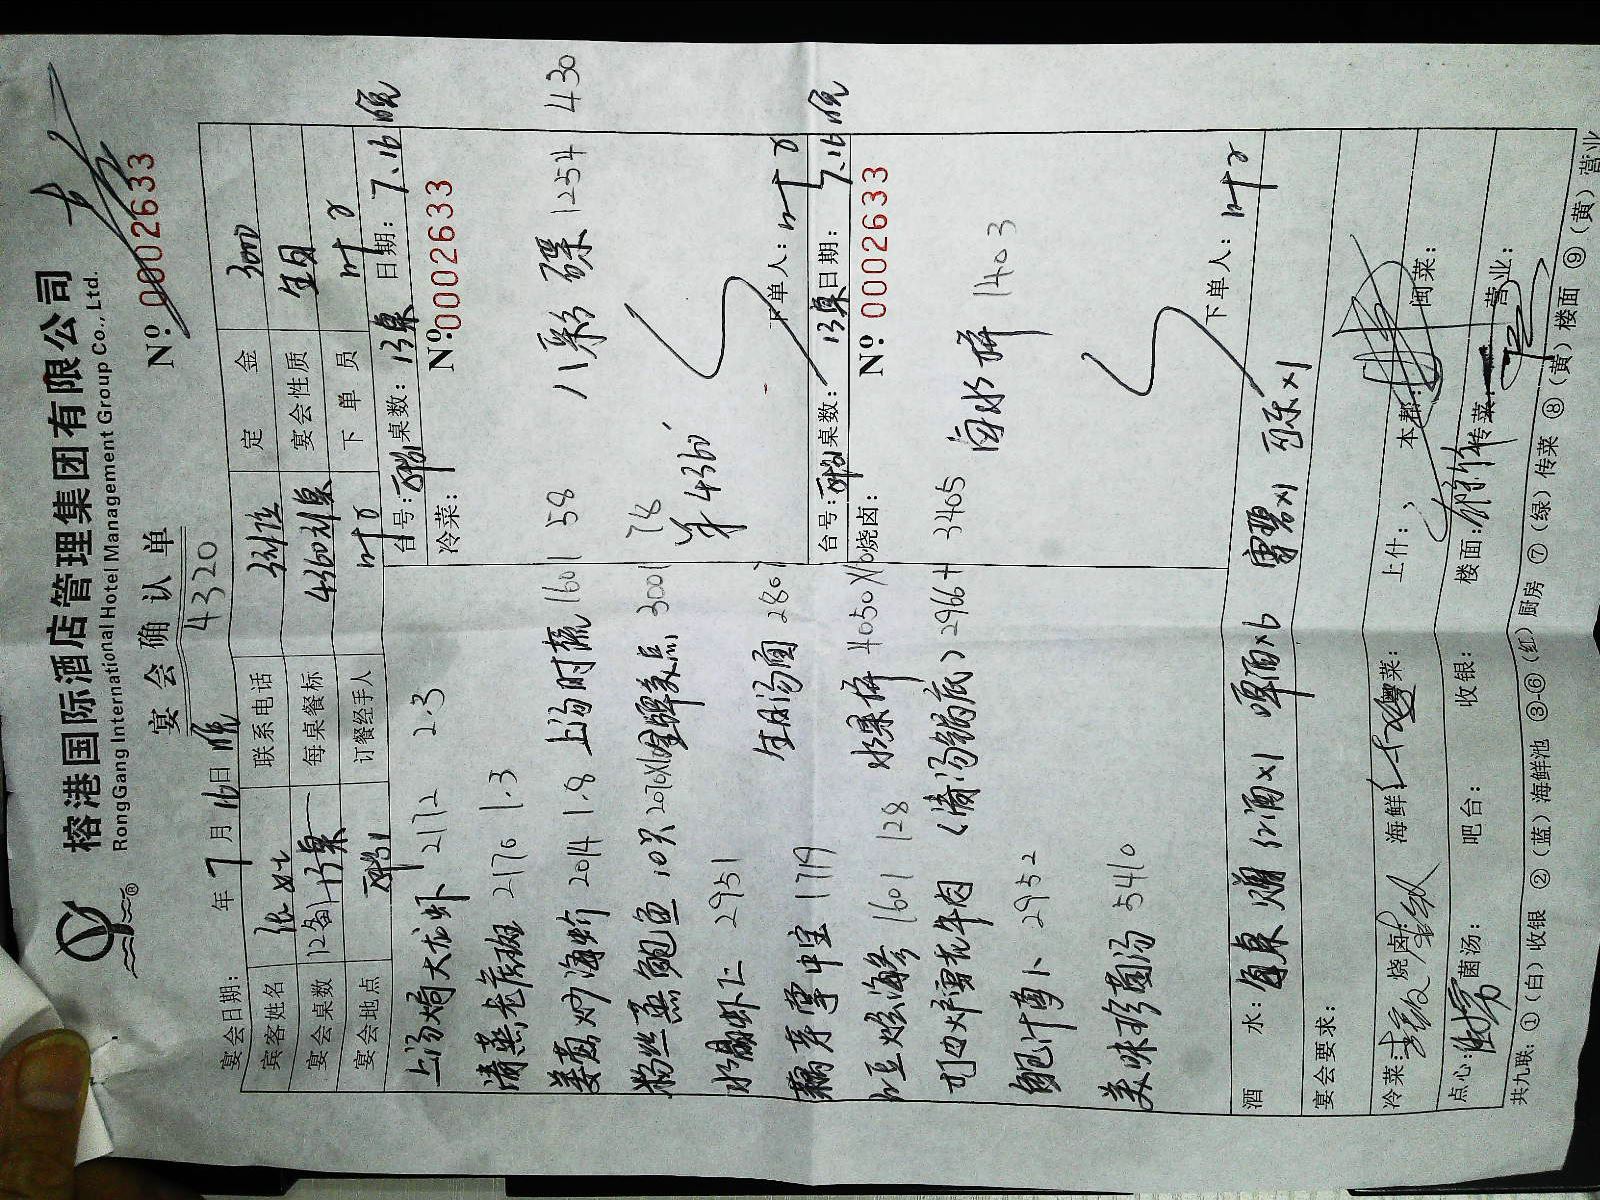 榕港国际酒店管理集团有限公司
RongGang International Hotel Management Group Co., Ltd.
宴会确认单
№ 0002633
宴会日期: 年 7 月 16 日 晚 4320
宾客姓名 联系电话 定金 3000
宴会桌数 12备1 13桌 每桌餐标 宴会性质 生日
宴会地点 订餐经手人 叶 下单员 叶
上汤焗大龙虾 2172 2.3
清蒸老虎斑 2170 1.3
姜葱炒海蛏 2014 1.8
粉丝蒸鲍鱼 10只 2070X10
水晶虾仁 2951
藕芽掌中宝 1719
1601 128
雪花牛肉 (清汤锅底) 2966+ 3405
鲍汁萝卜 2952
美味珍菌汤 5410
上汤时蔬 1601 58
金牌美点 3001 78
生日汤面 2801
水果拼 4050X16
台号: 桌数: 13桌 日期: 7.16 晚
冷菜: № 0002633
八彩碟 1254 430
4360
下单人: 叶
台号: 桌数: 13桌 日期: 7.16 晚
烧卤: № 0002633
卤水拼 1403
下单人: 叶
酒水: 每桌 红酒X1 啤酒X6 雪碧X1 可乐X1
宴会要求:
冷菜: 烧卤: 海鲜: 粤菜: 上什: 本部: 闽菜:
点心: 菌汤: 吧台: 收银: 楼面: 传菜: 营业:
共九联: ①(白)收银 ②(蓝)海鲜池 ③-⑥(红)厨房 ⑦(绿)传菜 ⑧(黄)楼面 ⑨(黄)营业